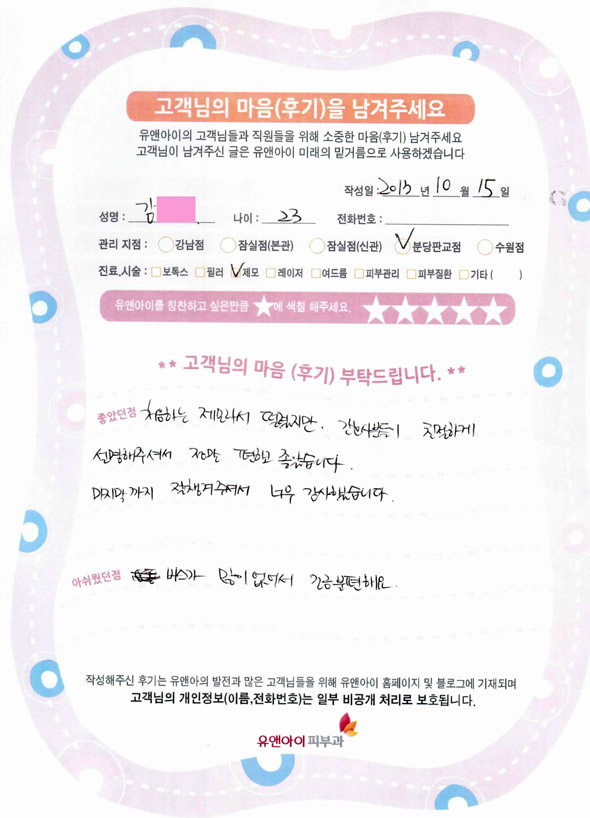 고객님의 마음(후기)을 남겨주세요
유앤아이의 고객님들과 직원들을 위해 소중한 마음(후기) 남겨주세요
고객님이 남겨주신 글은 유앤아이 미래의 밑거름으로 사용하겠습니다
작성일 2013 년 10 월 15 일
성명 : 김 나이 : 23 전화번호 :
관리 지점 : 강남점 잠실점(본관) 잠실점(신관) 분당판교점 수원점
진료,시술 : 보톡스 필러 제모 레이저 여드름 피부관리 피부질환 기타 ( )
유앤아이를 칭찬하고 싶은만큼 ★에 색칠 해주세요. ★★★★★
** 고객님의 마음 (후기) 부탁드립니다. **
좋았던점 처음하는 제모라서 떨렸지만. 간호사분들이 친절하게
설명해주셔서 정말 편하고 좋았습니다.
마지막 까지 잘챙겨주셔서 너무 감사했습니다.
아쉬웠던점 버스가 많이 없어서 조금불편해요.
작성해주신 후기는 유앤아의 발전과 많은 고객님들을 위해 유앤아이 홈페이지 및 블로그에 기재되며
고객님의 개인정보(이름,전화번호)는 일부 비공개 처리로 보호됩니다.
유앤아이 피부과